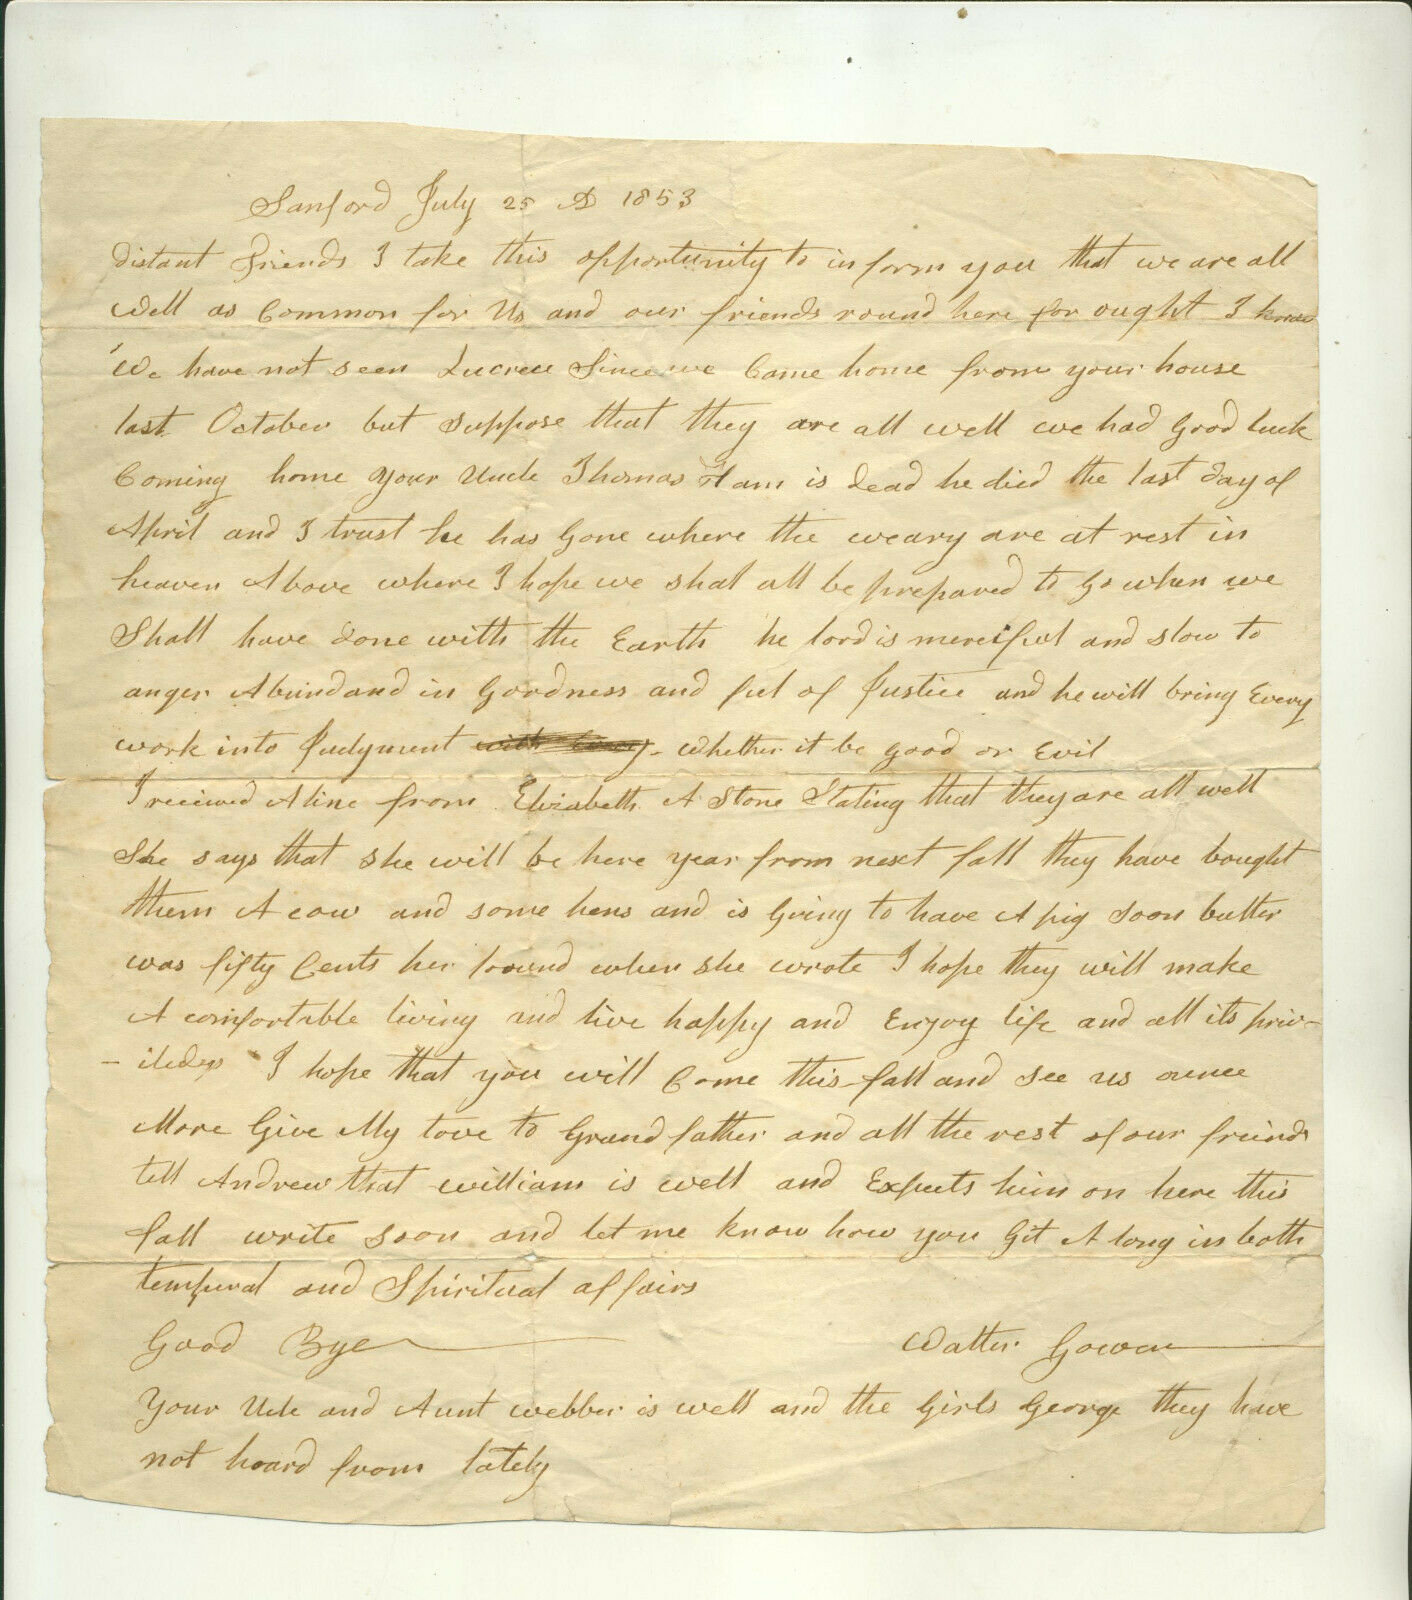 Sanford July 25 AD 1853
distant Friends I take this opportunity to inform you that we are all
Well as Common for Us and our friends round here for ought I know
We have not seen Since we Came home from your house
last October but suppose that they are all well we had Good luck
Coming home your Uncle Thomas Ham is dead he died the last day of
April and I trust he has Gone where the weary are at rest in
heaven Above where I hope we shal all be prepared to Go when we
Shall have done with the Earth he lord is merciful and slow to
anger Abundand in Goodness and ful of Justice and he will bring Every
work into Judgment whether it be good or Evil
I reciewed A line from Elizabeth A Stone Stating that they are all well
She says that she will be here year from next fall they have bought
them A cow and some hens and is Going to have A pig soon butter
was fifty Cents her pound when she wrote I hope they will make
A comfortable living and live happy and Enjoy life and all its priv-
- iledges I hope that you will Come this fall and see us ounce
More Give My love to Grandfather and all the rest of our freinds
tell Andrew that william is well and Expects him on here this
fall write soon and let me know how you Git A long in both
temperal and Spiritual affairs
Good Bye Walter Gowen
Your Ucle and Aunt webber is well and the Girls George they have
not heard from lately